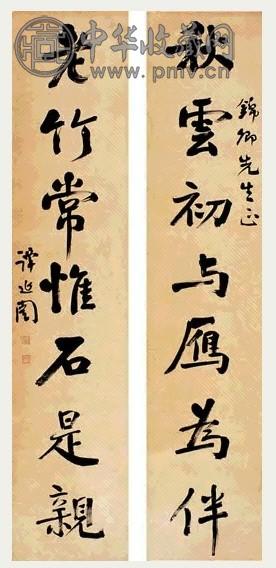 中华收藏网
www.pmv.cn
錦卿先生正
秋雲初与鴈為伴
老竹常惟石是親
譚延闓